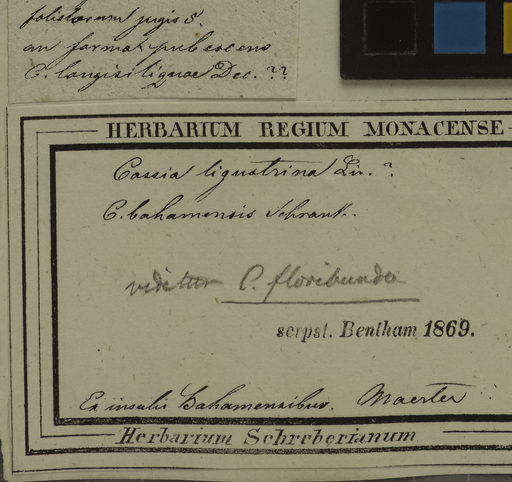 foliorum jugis 5.
an forma pubescens
C. longisiliquae Dec. ??
HERBARIUM REGIUM MONACENSE
Cassia ligustrina Lin. ?
C. bahamensis Schrank.
videtur C. floribunda
scrpst. Bentham 1869.
Ex insulis bahamensibus. Maerter
Herbarium Schreberianum